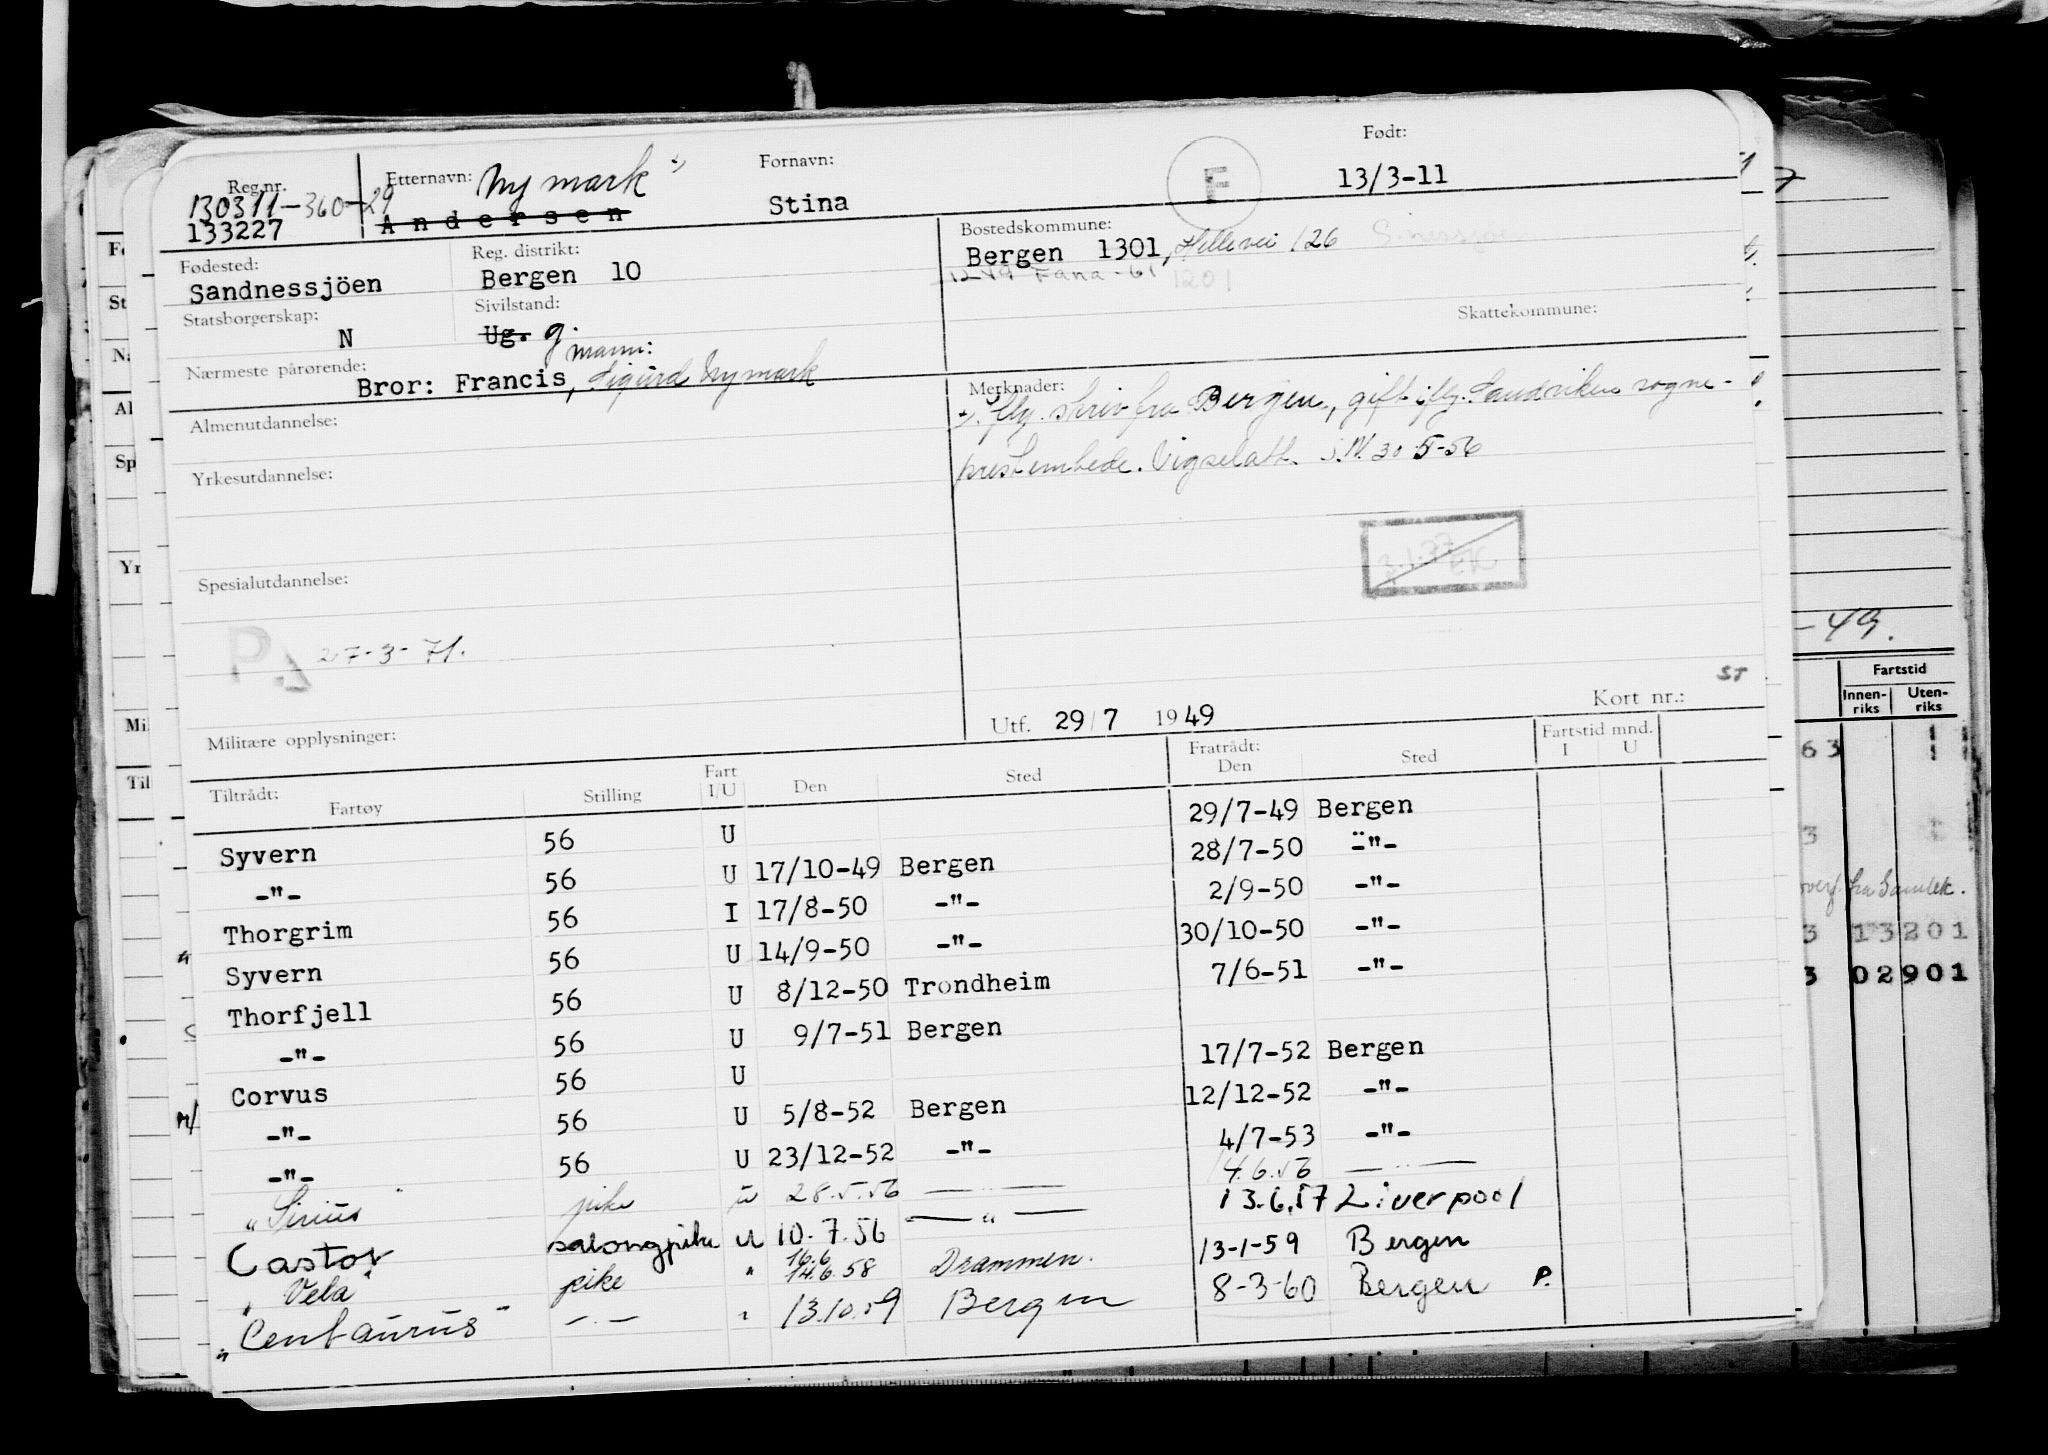 Reg.nr. Etternavn: Nymark Fornavn: Født:
130311-360-29
133227 Andersen Stina F 13/3-11
Fødested: Reg. distrikt: Bostedskommune:
Sandnessjöen Bergen 10 Bergen 1301, 126
1249 Fana-61 1201
Statsborgerskap: Sivilstand: Skattekommune:
N Ug. g.
Nærmeste pårørende: mann:
Bror: Francis, Sigurd Nymark
Almenutdannelse:
Yrkesutdannelse:
Spesialutdannelse:
27-3-71.
Militære opplysninger:
Merknader:
skriv fra Bergen, gift iflg. Sandviken sogne-
prestembede. Vigselatt. 30-5-56
ST
Utf. 29/7 1949 Kort nr.:
Tiltrådt: Fart Fratrådt: Fartstid mnd.
Fartøy Stilling I/U Den Sted Den Sted I U
Syvern 56 U 29/7-49 Bergen
-"- 56 U 17/10-49 Bergen 28/7-50 -"-
Thorgrim 56 I 17/8-50 -"- 2/9-50 -"-
Syvern 56 U 14/9-50 -"- 30/10-50 -"-
Thorfjell 56 U 8/12-50 Trondheim 7/6-51 -"-
-"- 56 U 9/7-51 Bergen
Corvus 56 U 17/7-52 Bergen
-"- 56 U 5/8-52 Bergen 12/12-52 -"-
-"- 56 U 23/12-52 -"- 4/7-53 -"-
"Sirius" pike u 28.5.56 — " — 14.6.56 — " —
Castor salongpike U 10.7.56 — " — 13.6.57 Liverpool
16.6
"Vela" pike " 14.6.58 Drammen. 13-1-59 Bergen
"Centaurus" -.- " 13.10.59 Bergen 8-3-60 Bergen P.
-49.
Fartstid
Innen-riks Uten-riks
63
3
overf. fra Samlek.
3 13201
3 02901